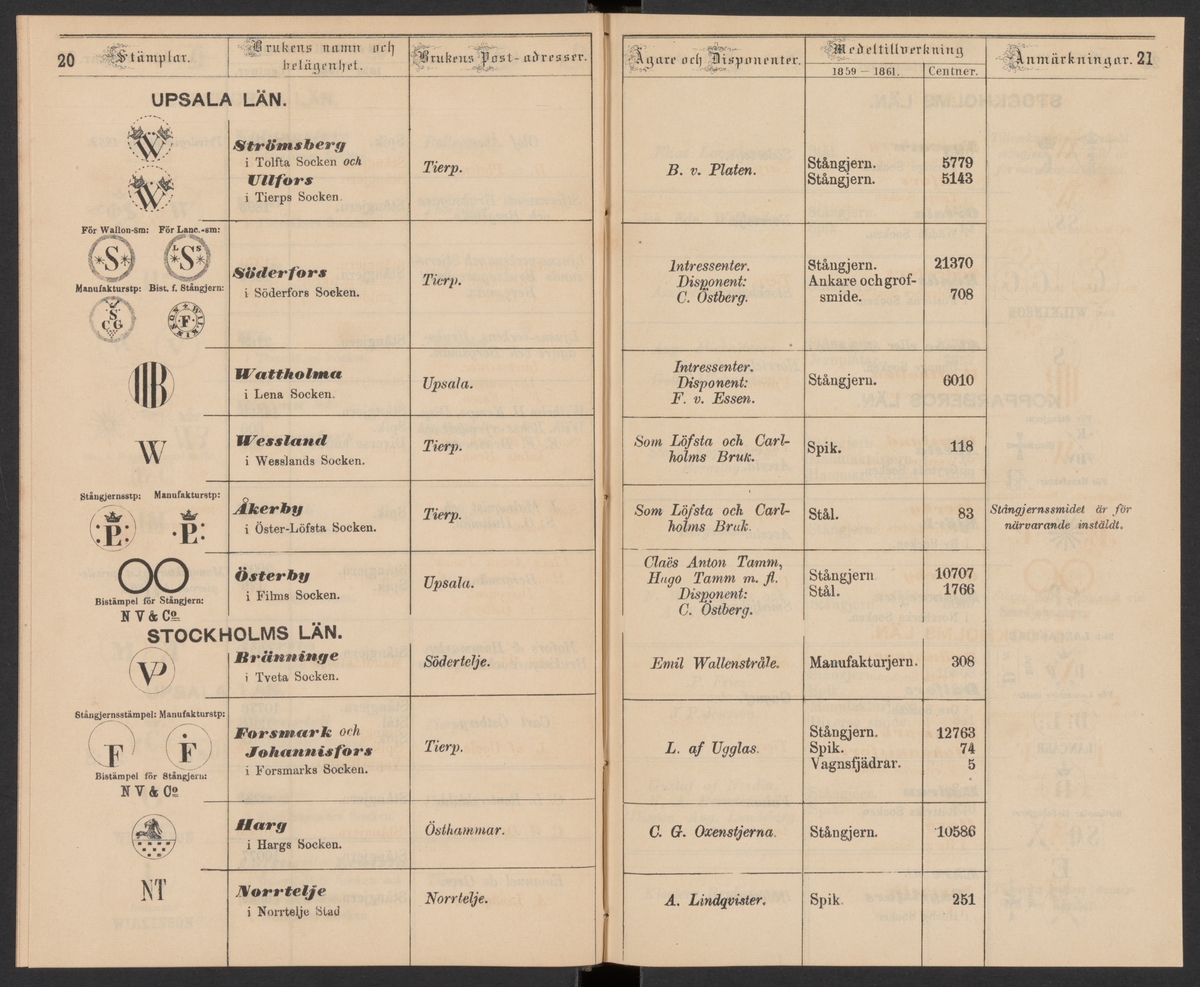 20 Stämplar. Brukens namn och belägenhet. Brukens Post-adresser. Ägare och Disponenter. Medeltillverkning 1859 — 1861. Centner. Anmärkningar. 21
UPSALA LÄN.
W
W
Strömsberg
i Tolfta Socken och
Ullfors
i Tierps Socken.
Tierp.
B. v. Platen.
Stångjern. 5779
Stångjern. 5143
För Wallon-sm: För Lanc.-sm:
S L S S
Manufakturstp: Bist. f. Stångjern:
S C G F WILKINSON
Söderfors
i Söderfors Socken.
Tierp.
Intressenter.
Disponent:
C. Östberg.
Stångjern. 21370
Ankare och grof-
smide. 708
B
Wattholma
i Lena Socken.
Upsala.
Intressenter.
Disponent:
F. v. Essen.
Stångjern. 6010
W
Wessland
i Wesslands Socken.
Tierp.
Som Löfsta och Carl-
holms Bruk.
Spik. 118
Stångjernsstp: Manufakturstp:
Åkerby
i Öster-Löfsta Socken.
Tierp.
Som Löfsta och Carl-
holms Bruk.
Stål. 83
Stångjernssmidet är för
närvarande instäldt.
OO
Bistämpel för Stångjern:
N V & Co
Österby
i Films Socken.
Upsala.
Claës Anton Tamm,
Hugo Tamm m. fl.
Disponent:
C. Östberg.
Stångjern 10707
Stål. 1766
STOCKHOLMS LÄN.
VP
Bränninge
i Tveta Socken.
Södertelje.
Emil Wallenstråle.
Manufakturjern. 308
Stångjernsstämpel: Manufakturstp:
F F
Bistämpel för Stångjern:
N V & Co
Forsmark och
Johannisfors
i Forsmarks Socken.
Tierp.
L. af Ugglas.
Stångjern. 12763
Spik. 74
Vagnsfjädrar. 5
Harg
i Hargs Socken.
Östhammar.
C. G. Oxenstjerna.
Stångjern. 10586
NT
Norrtelje
i Norrtelje Stad
Norrtelje.
A. Lindqvister.
Spik. 251